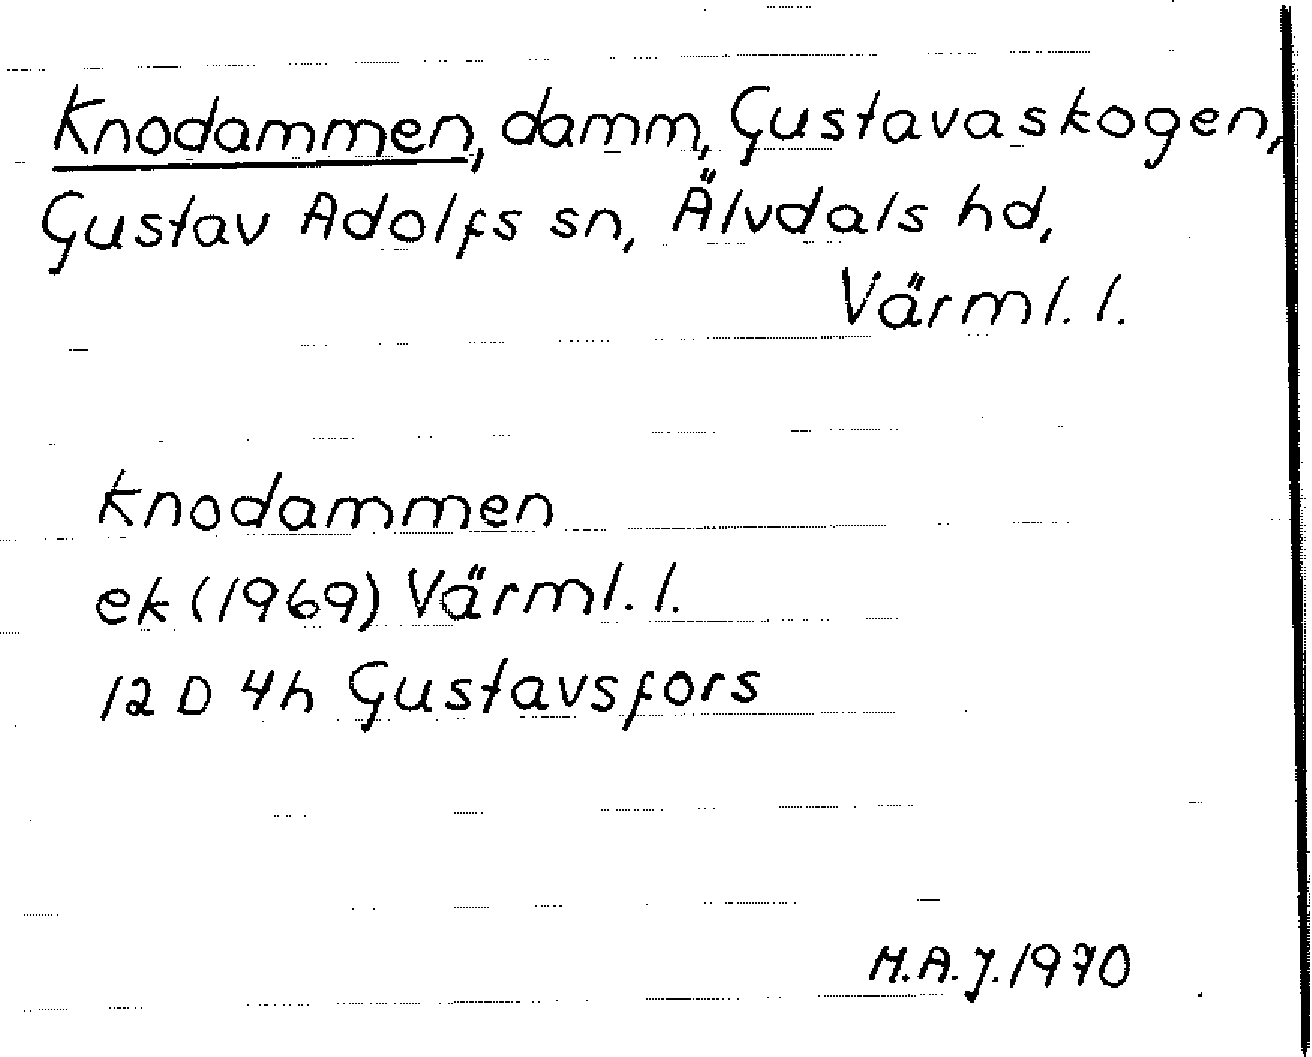 Knodammen, damm, Gustavaskogen,
Gustav Adolfs sn, Älvdals hd,
Värml. l.
Knodammen
ek (1969) Värml. l.
12 D 4h Gustavsfors
M.A.J. 1970